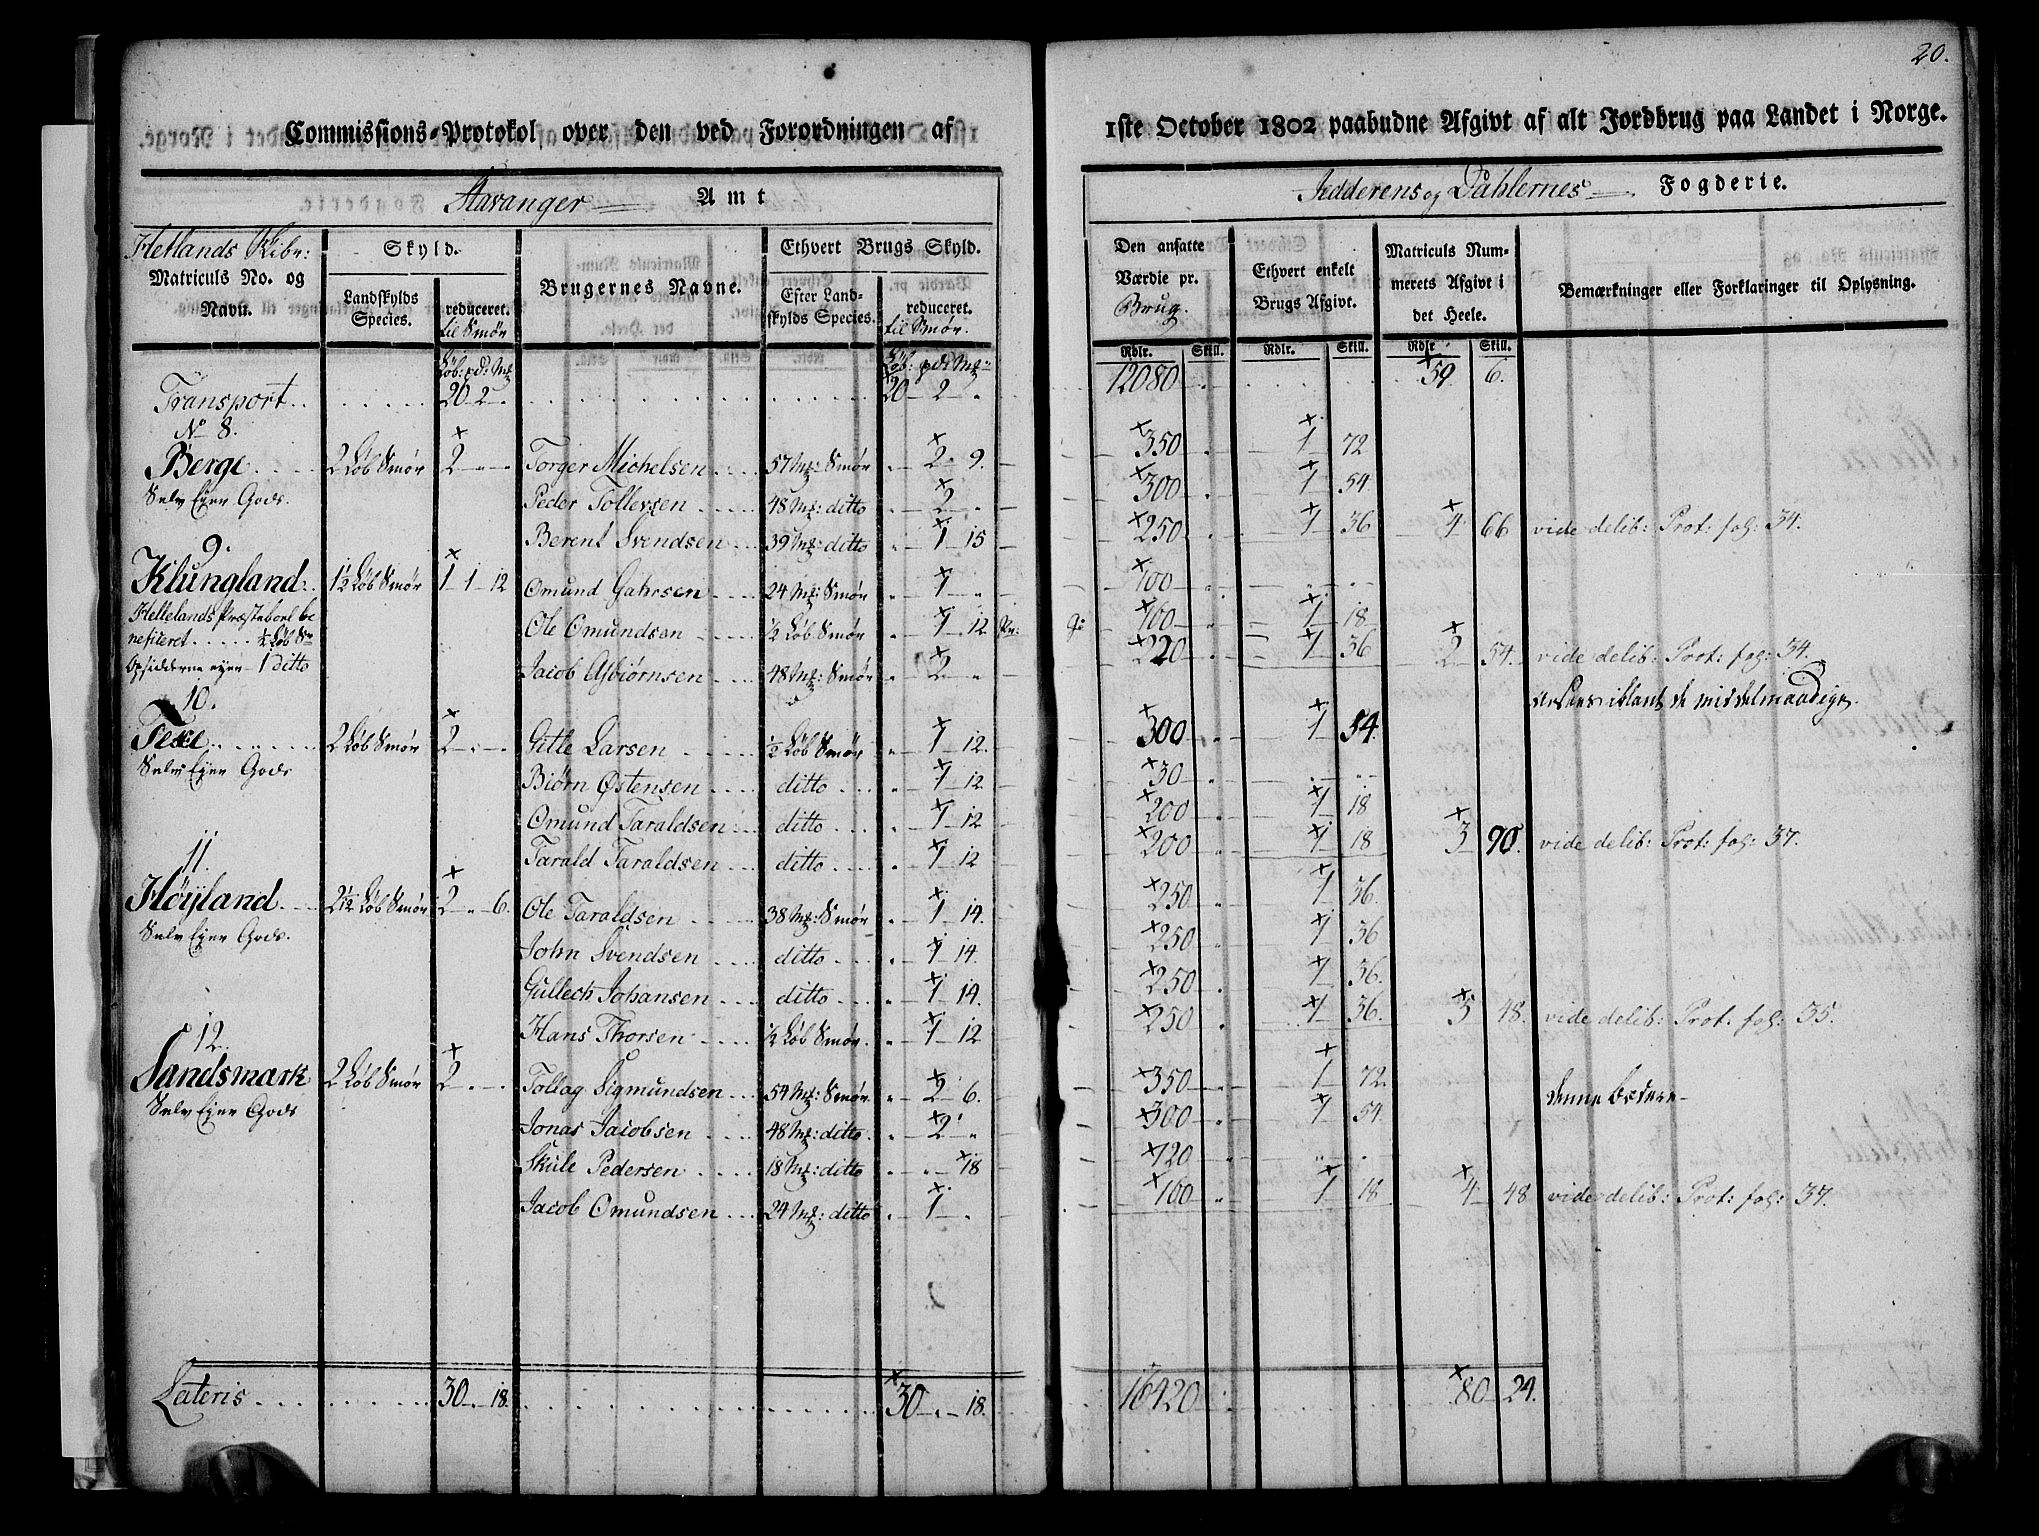 20.
Commissions-Protokol over den ved Forordningen af 1ste October 1802 paabudne Afgivt af alt Jordbrug paa Landet i Norge.
Stavanger Amt Jedderens og Dahlernes Fogderie.
Hetlands Skibr:
Matriculs No. og Navn.
Skyld.
Landskylds Species.
reduceret. til Smør
Brugernes Navne.
Ethvert Brugs Skyld.
Efter Landskylds Species.
reduceret. til Smør.
Den ansatte Værdie pr. Brug.
Ethvert enkelt Brugs Afgivt.
Matriculs Nummerets Afgivt i det Heele.
Bemærkninger eller Forklaringer til Oplysning.
Løb: pd: Mk Løb: pd: Mk Rdlr. Skill. Rdlr. Skill. Rdlr. Skill.
Transport 20 2 " 20 2 " 12080 59 6.
No 8.
Berge 2 Løb Smør 2 " " Torger Michelsen 57 Mk: Smør " 2 9. 350 1 72
Selv Eyer Gods. Peder Tollevsen 48 Mk: ditto " 2 " 300 1 54
Berent Svendsen 39 Mk: ditto " 1 15 250 1 36 4 66 vide delib: Prot: fol: 34.
9.
Klungland 1½ Løb Smør 1 1 12 Omund Gahrsen 24 Mk: Smør " 1 " 100 " "
Hellelands Præsteboel beneficeret ½ Løb Sr Ole Omundsen ½ Løb Smør " 1 12 100 1 18
Opsidderne eyer 1 ditto Jacob Asbiørnsen 48 Mk: Smør " 2 " 220 1 36 2 54. vide delib: Prot: fol: 34.
10. iblant de middelmaadige.
Texe 2 Løb Smør 2 " " Gitle Larsen ½ Løb Smør " 1 12. 300 1 54
Selv Eyer Gods Biørn Østensen ditto " 1 12 30 " "
Omund Taraldsen ditto " 1 12 200 1 18
Tarald Taraldsen ditto " 1 12 200 1 18 3 90. vide delib: Prot: fol: 37.
11.
Høyland 2½ Løb Smør 2 " 6. Ole Taraldsen 38 Mk: Smør " 1 14. 250 1 36.
Selv Eyer Gods. John Svendsen ditto " 1 14. 250 1 36
Gullech Johansen ditto " 1 14. 250 1 36.
Hans Thorsen ½ Løb Smør. " 1 12 250 1 36. 5 48. vide delib: Prot: fol: 35.
12.
Sandsmark 2 Løb Smør 2 " " Tollag Sigmundsen 54 Mk: Smør " 2 6. 350 1 72. denne bedre
Selv Eyer Gods Jonas Jacobsen 48 Mk: ditto " 2 " 300 1 54
Skule Pedersen 18 Mk: ditto " " 18 120 " "
Jacob Omundsen 24 Mk: ditto " 1 " 100 1 18 4 48 vide delib: Prot: fol: 37.
Lateris 30 " 18. 30 " 18. 16420 80 24.